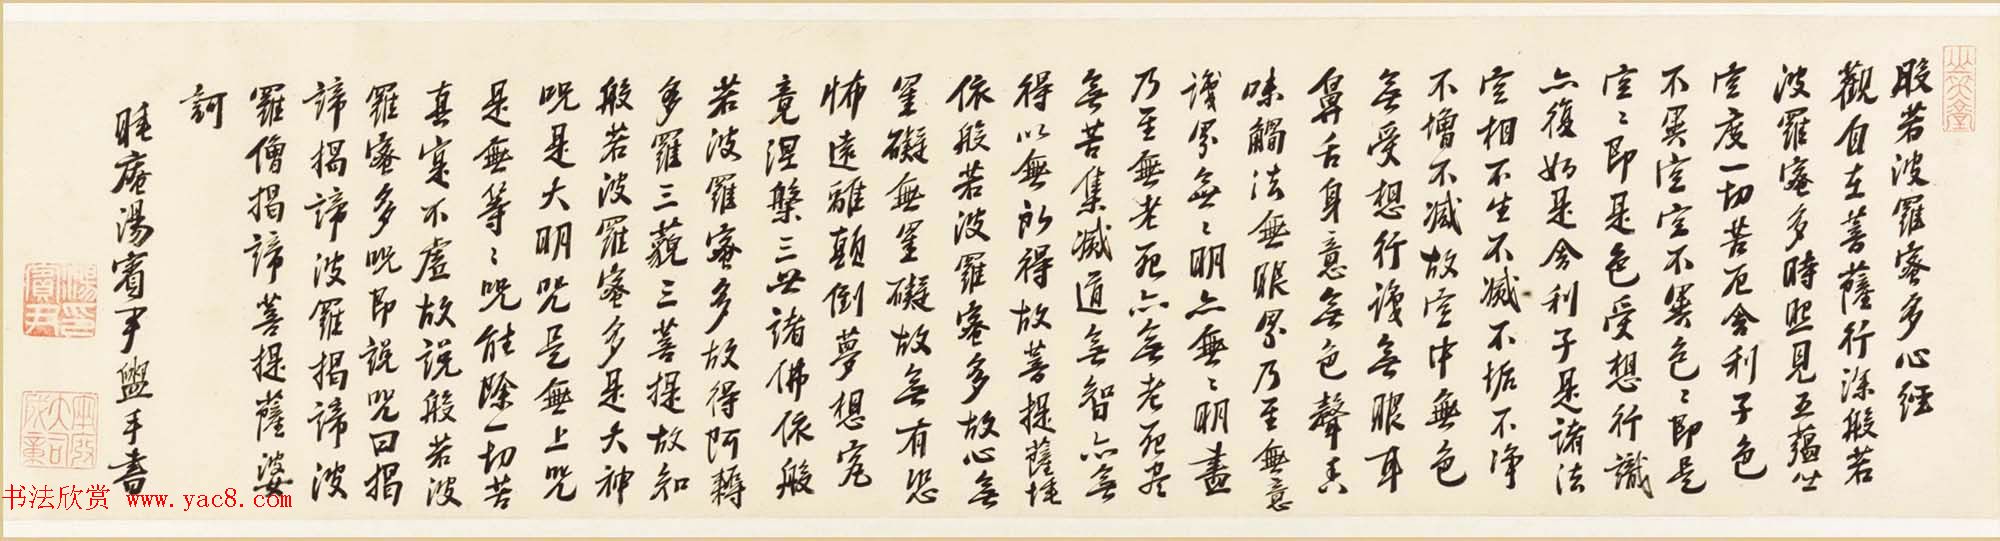 般若波羅蜜多心經
觀自在菩薩行深般若
波羅蜜多時照見五蘊皆
空度一切苦厄舍利子色
不異空空不異色色即是
空空即是色受想行識
亦復如是舍利子是諸法
空相不生不滅不垢不淨
不增不減故空中無色
無受想行識無眼耳
鼻舌身意無色聲香
味觸法無眼界乃至無意
識界無無明亦無無明盡
乃至無老死亦無老死盡
無苦集滅道無智亦無
得以無所得故菩提薩埵
依般若波羅蜜多故心無
罣礙無罣礙故無有恐
怖遠離顛倒夢想究
竟涅槃三世諸佛依般
若波羅蜜多故得阿耨
多羅三藐三菩提故知
般若波羅蜜多是大神
咒是大明咒是無上咒
是無等等咒能除一切苦
真實不虛故說般若波
羅蜜多咒即說咒曰揭
諦揭諦波羅揭諦波
羅僧揭諦菩提薩婆
訶
睡庵湯賓尹盥手書
湯賓尹印
书法欣赏 www.yac8.com